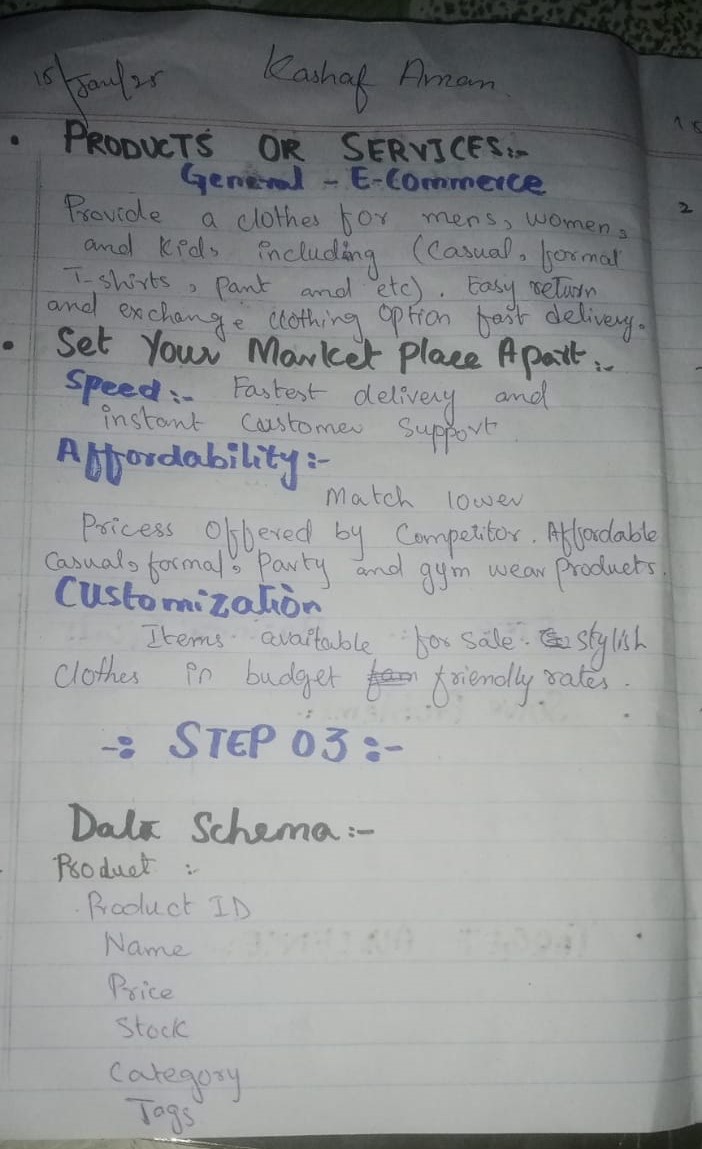 15/Jan/25 Kashaf Aman.
• PRODUCTS OR SERVICES:-
General - E-Commerce
Provide a clothes for mens, women,
and kids including (Casual, formal
T-shirts, pant and etc). Easy return
and exchange clothing option fast delivery.
• Set Your Market Place Apart:-
Speed:- Fastest delivery and
instant Customer Support
Affordability:-
Match lower
Pricess Offered by Competitor. Affordable
Casual, formal, Party and gym wear Products.
Customization
Items available for sale. stylish
Clothes in budget friendly rates.
-: STEP 03 :-
Data Schema:-
Product :-
Product ID
Name
Price
Stock
Category
Tags
2